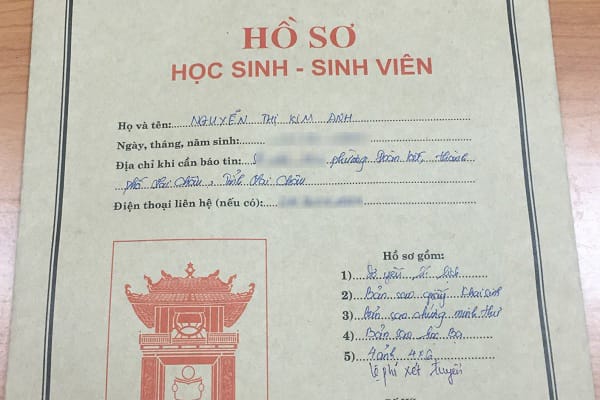 HỒ SƠ
HỌC SINH - SINH VIÊN
Họ và tên: NGUYỄN THỊ KIM ANH
Ngày, tháng, năm sinh:
Địa chỉ khi cần báo tin: phường Đoàn Kết, thành
phố Lai Châu, Tỉnh Lai Châu
Điện thoại liên hệ (nếu có):
Hồ sơ gồm:
1) Sơ yếu lí lịch
2) Bản sao giấy khai sinh
3) Bản sao chứng minh thư
4) Bản sao học Bạ
5) 4 ảnh 4x6
lệ phí xét tuyển